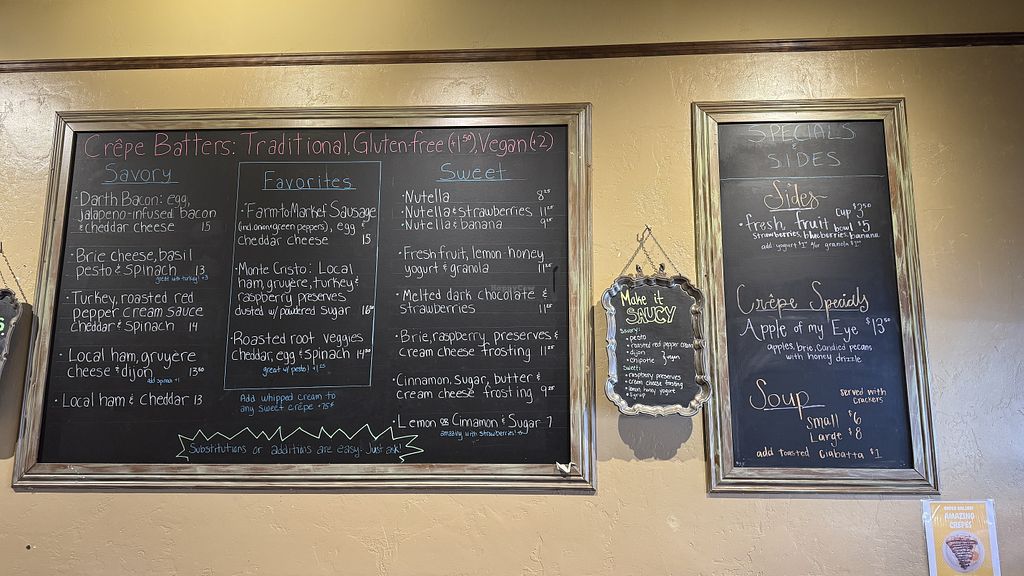 Crêpe Batters: Traditional, Gluten-free (+1.50), Vegan (+2)
Savory
• Darth Bacon: egg,
jalapeno-infused bacon
& cheddar cheese 15
• Brie cheese, basil
pesto & spinach 13
great with turkey! +3
• Turkey, roasted red
pepper cream sauce
cheddar & spinach 14
• Local ham, gruyère
cheese & dijon 13.50
add spinach +1
• Local ham & cheddar 13
Favorites
• Farm to Market Sausage
(incl. onion/green peppers), egg &
cheddar cheese 15
• Monte Cristo: Local
ham, gruyère, turkey &
raspberry preserves
dusted w/ powdered sugar
• Roasted root veggies
cheddar, egg & spinach 14.50
great w/ pesto! +1.25
Add whipped cream to
any sweet crêpe +.75¢
Sweet
• Nutella 8.25
• Nutella & strawberries 11.25
• Nutella & banana 9.25
• Fresh fruit, lemon honey
yogurt & granola 11.25
• Melted dark chocolate &
strawberries 11.25
• Brie, raspberry preserves &
cream cheese frosting 11.25
• Cinnamon, sugar, butter &
cream cheese frosting 9.25
• Lemon or Cinnamon & Sugar 7
amazing with strawberries!
Substitutions or additions are easy. Just ask!
Make it
SAUCY
Savory:
• pesto
• roasted red pepper cream
• dijon
• chipotle } vegan
Sweet:
• raspberry preserves
• cream cheese frosting
• lemon honey yogurt
• syrup
SPECIALS
&
SIDES
Sides
• fresh fruit cup $3.50
bowl $5
strawberries, blueberries, banana
add yogurt $1 &/or granola $1.25
Crêpe Specials
Apple of my Eye $13.50
apples, brie, candied pecans
with honey drizzle
Soup
Served with
Crackers
Small $6
Large $8
add toasted Ciabatta $1
AMAZING
CRÊPES